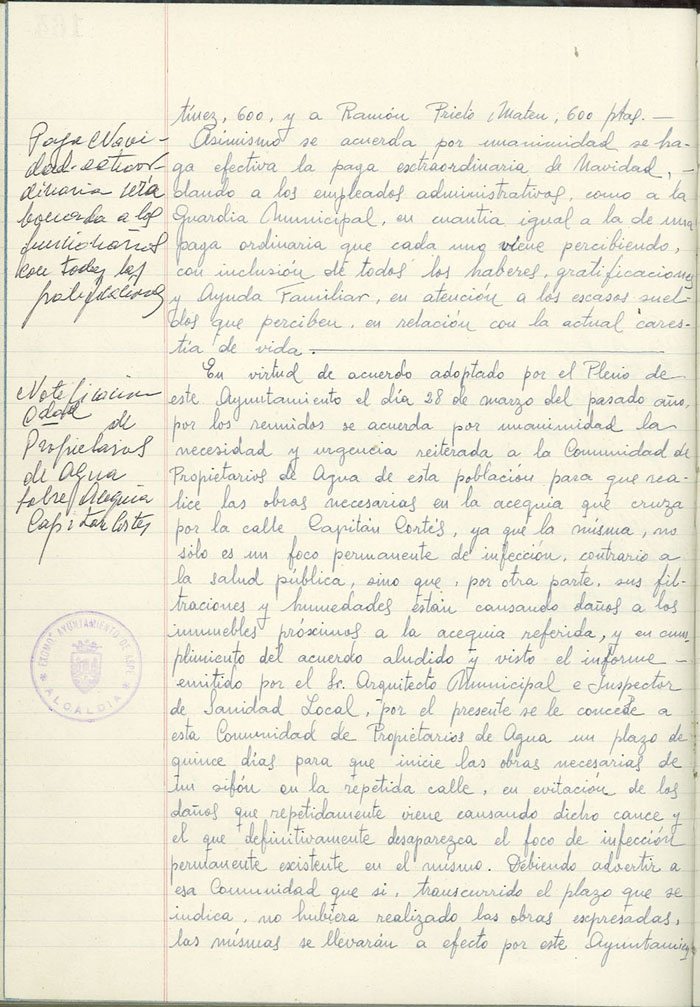 tínez, 600, y a Ramón Prieto Mateu, 600 ptas. —
Asimismo se acuerda por unanimidad se ha-
ga efectiva la paga extraordinaria de Navidad, –
dando a los empleados administrativos, como a la
Guardia Municipal, en cuantia igual a la de una
paga ordinaria que cada uno viene percibiendo,
con inclusión de todos los haberes, gratificaciones
y Ayuda Familiar, en atención a los escasos suel-
dos que perciben, en relación con la actual cares-
tía de vida. —
En virtud de acuerdo adoptado por el Pleno de
este Ayuntamiento el día 28 de marzo del pasado año,
por los reunidos se acuerda por unanimidad la
necesidad y urgencia reiterada a la Comunidad de
Propietarios de Agua de esta población para que rea-
lice las obras necesarias en la acequia que cruza
por la calle Capitán Cortés, ya que la misma, no
sólo es un foco permanente de infección, contrario a
la salud pública, sino que, por otra parte, sus fil-
traciones y humedades están causando daños a los
inmuebles próximos a la acequia referida, y en cum-
plimiento del acuerdo aludido y visto el informe –
emitido por el Sr. Arquitecto Municipal e Inspector
de Sanidad Local, por el presente se le concede a
esta Comunidad de Propietarios de Agua un plazo de
quince días para que inicie las obras necesarias de
un sifón en la repetida calle, en evitación de los
daños que repetidamente viene causando dicho cauce y
el que definitivamente desaparezca el foco de infección
permanente existente en el mismo. Debiendo advertir a
esa Comunidad que si, transcurrido el plazo que se
indica, no hubiera realizado las obras expresadas,
las mismas se llevarán a efecto por este Ayuntamien
Paga Navi-
dad extraor-
dinaria será
a los
funcionarios
con todas las
Notificacion
de
Propietarios
de Agua
sobre Acequia
Capitan Cortes
EXCMO. AYUNTAMIENTO DE
ALCALDIA